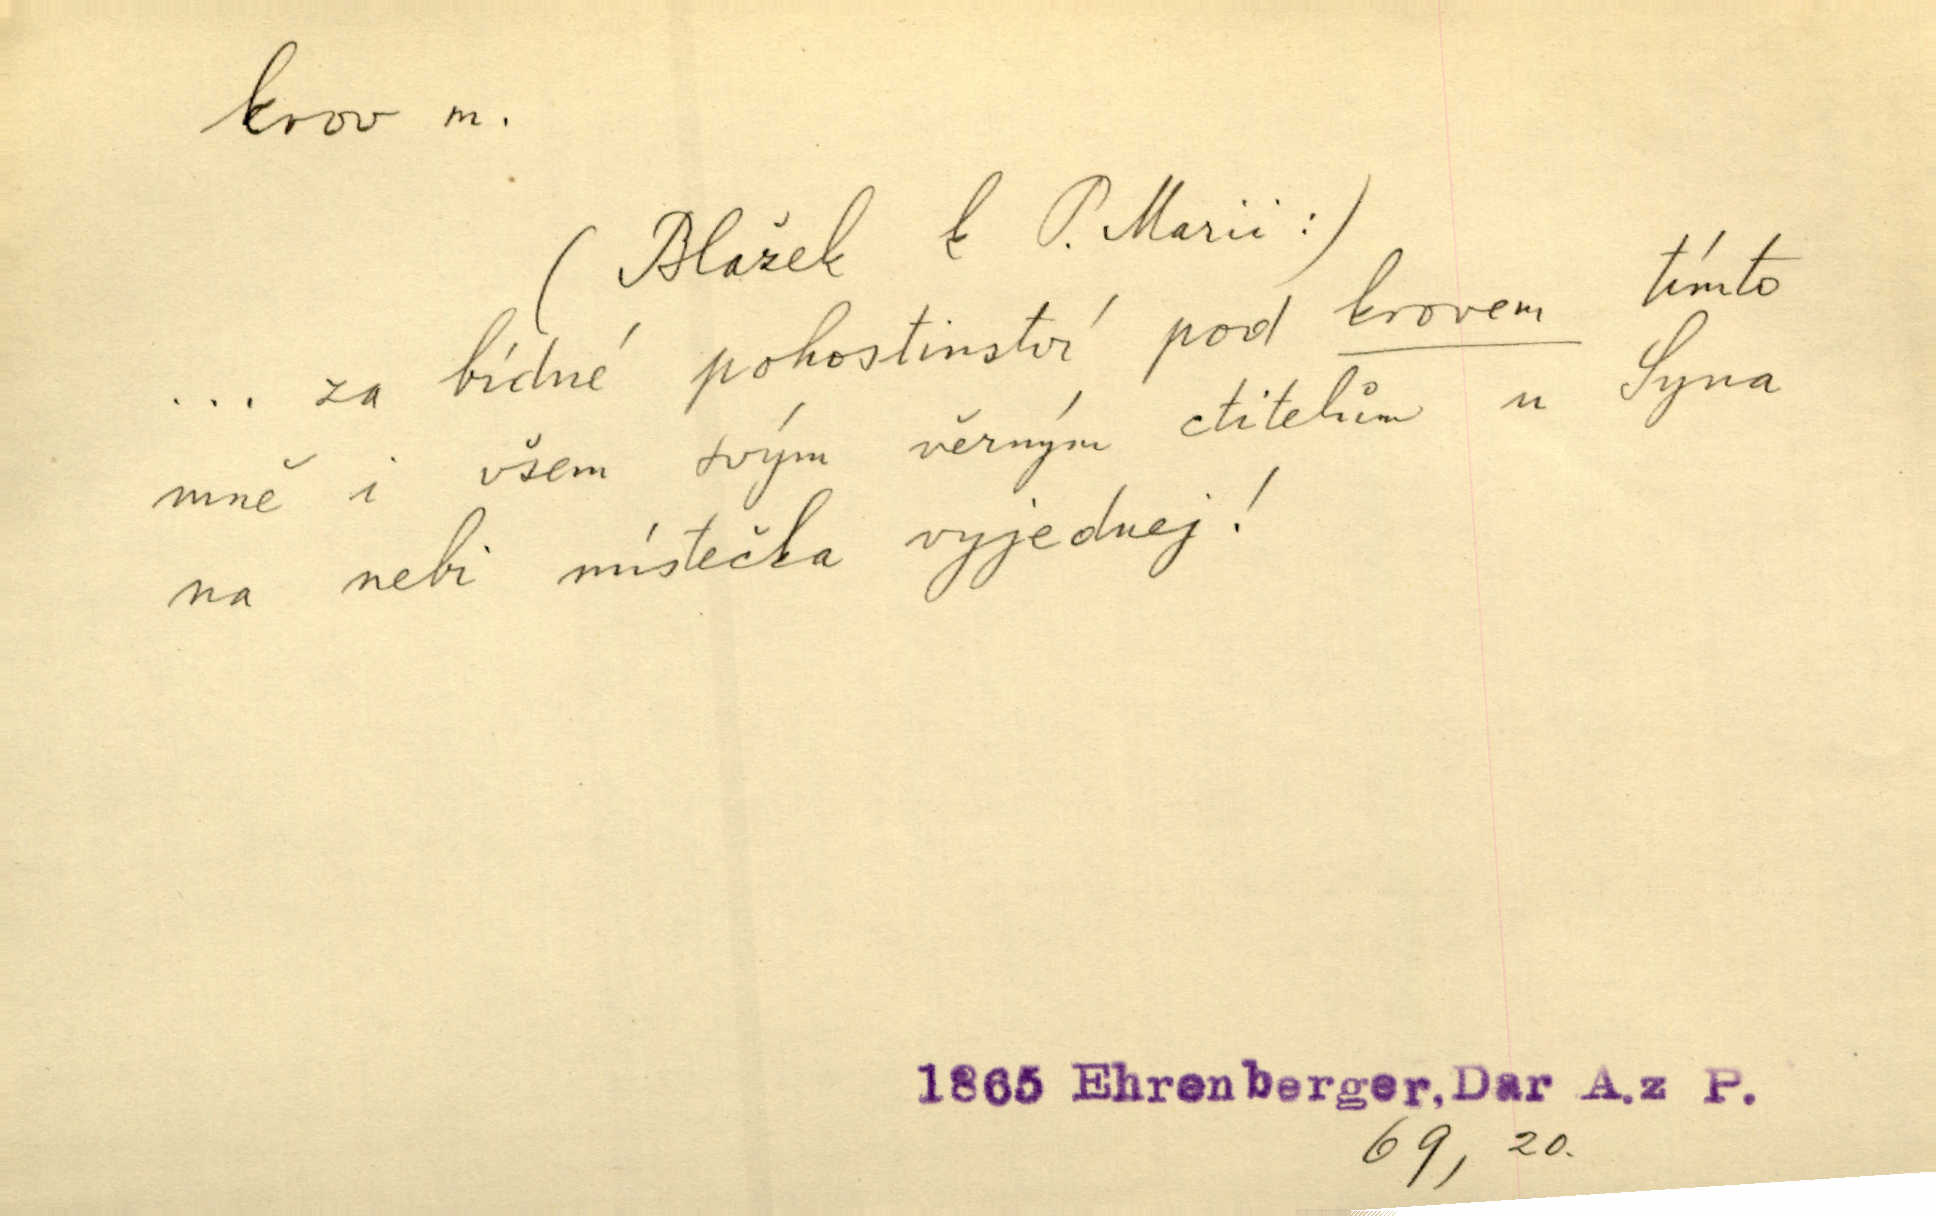 krov m.
( Blažek k P. Marii :)
... za bídné pohostinství pod krovem tímto
mně i všem svým věrným ctitelům u Syna
na nebi místečka vyjednej!
1865 Ehrenberger, Dar A.z P.
69, 20.